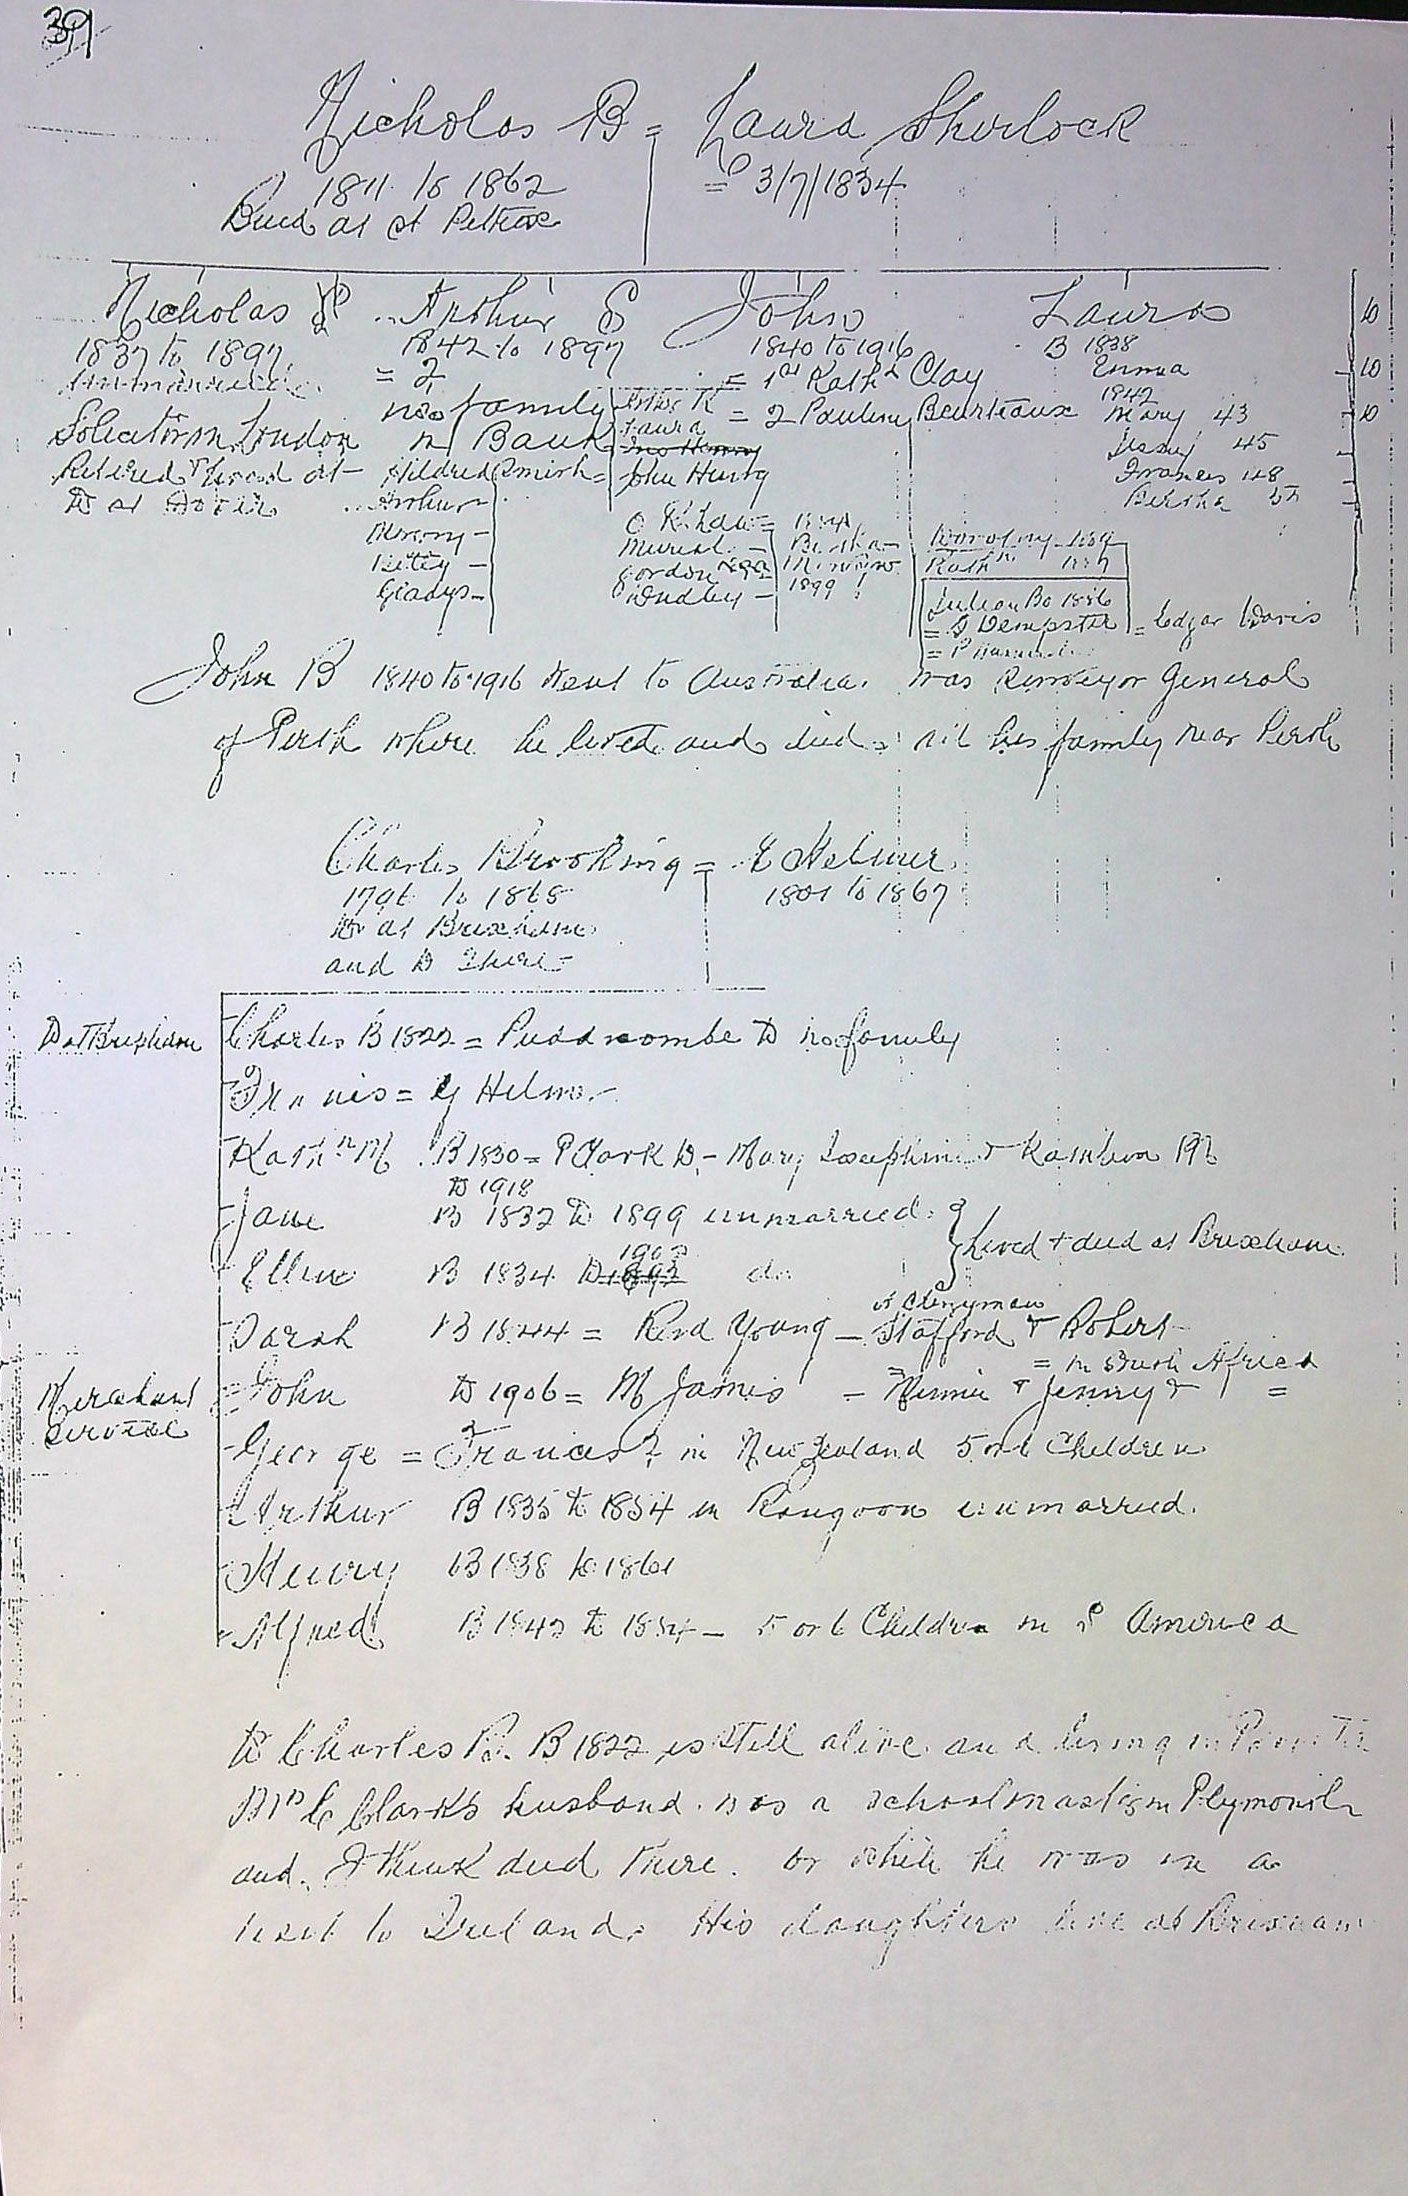 39
Nicholas B = Laura Sherlock
1811 to 1862 = 3/7/1834
Bured at St Petrox
Nicholas Arthur S John Laura
1837 to 1897 B 42 to 1897 1840 to 1916 B 1838
unmarried = 2 = 1st Kath Clay Emma
no family = 2 Pauline Beurteaux 1842
Solicitor in London in Bank Laura Mary 43
Retired & lived at Hildred Smirk = John Henry Jessy 45
D at Arthur Frances 48
Bertha
Mercny O K Shaw =
Kitty Muriel Bertha Dorothy
Gladys Gordon 1899 Kath
Dudley
= G Dempster = Edgar Davis
John B 1840 to 1916 Went to Australia. was Surveyor General
of Perth where he lived and died. all his family near Perth
Charles Brooking = E Helmer
1796 to 1868 1801 to 1867
B at Brixham
and D There
D at Brixham Charles B 1822 = Puddicombe D no family
Francis = G Helmer
Kathn M B 1830 = P Clark D - Mary Josephine & Kathleen
D 1918
Jane B 1832 D 1899 unmarried.
Lived & died at Brixham
Ellen B 1834 D do
a Clergyman
Sarah B 1844 = Revd Young - Stafford & Robert
= in South Africa
Merchant Service John D 1906 = M James - Minnie & Jenny & 1 =
George = Frances? in New Zealand 5 or 6 Children
Arthur B 1835 to 1854 in Rangoon unmarried.
Henry B 1838 to 1861
Alfred B 1842 to - 5 or 6 Children in S America
Charles B. B 1822 is still alive and living in
Mrs C Clark's husband was a schoolmaster in Plymouth
and I think died there. or while he was on a
visit to Ireland. His daughters live at Brixham